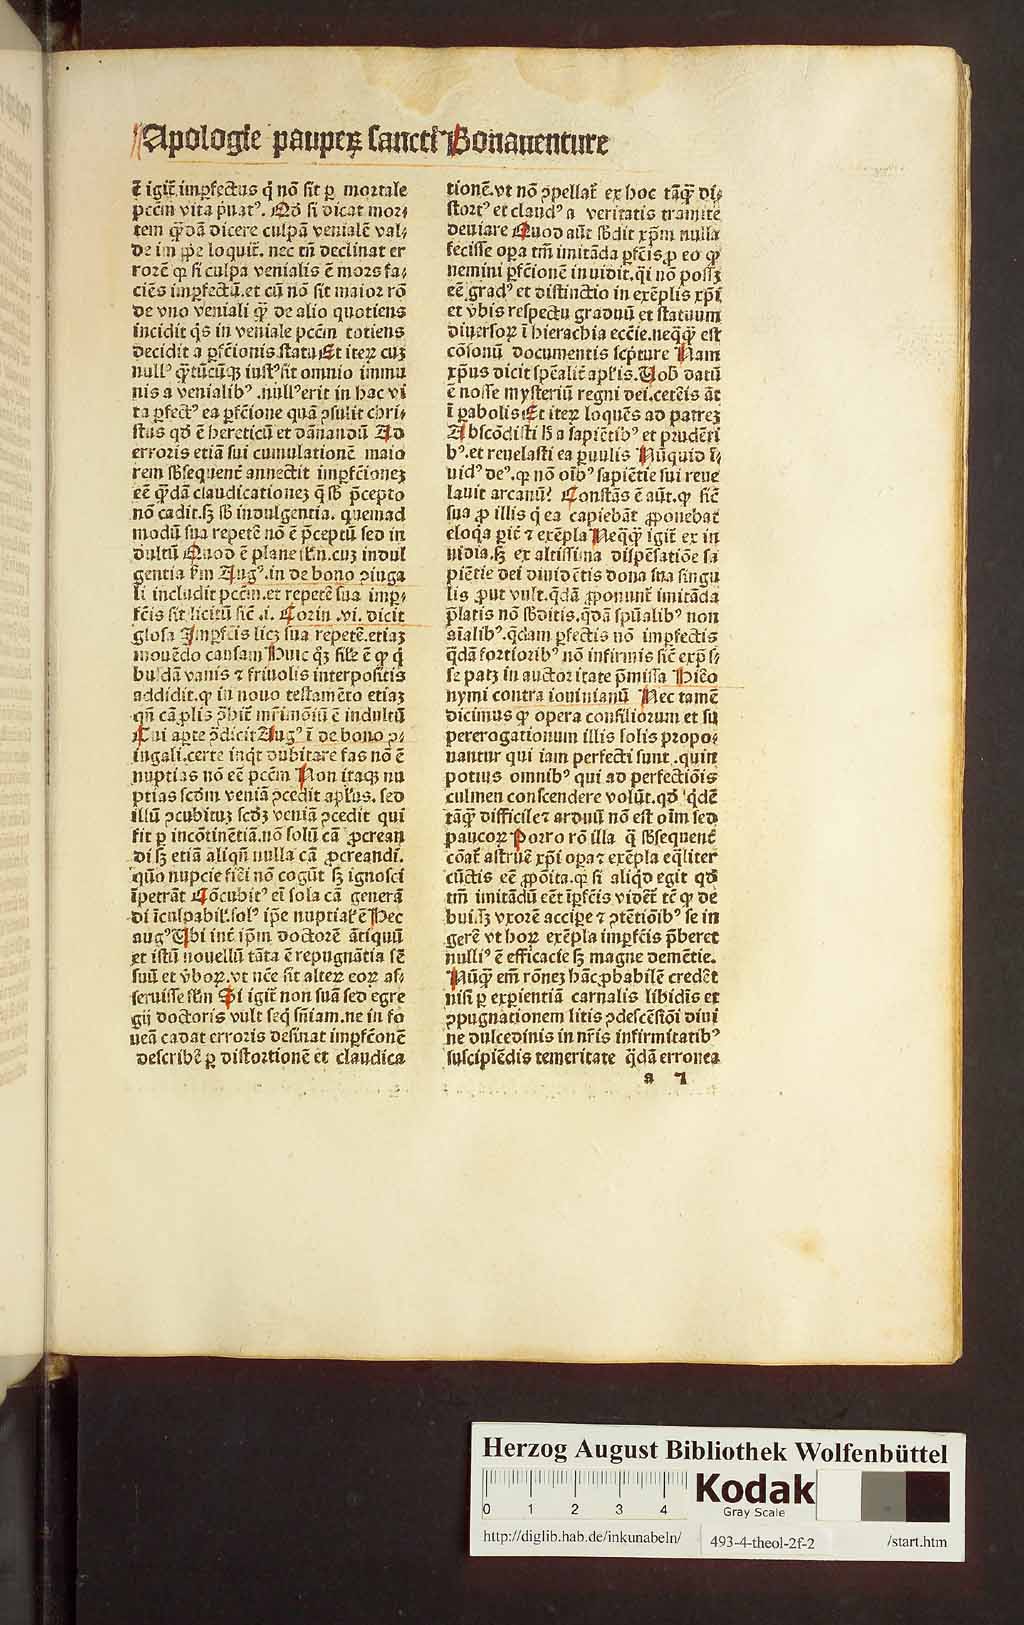 Apologie pauperꝝ sancti Bonauenture
ē igit᷑ imꝑfectus q̇ nō sit ꝑ mortale
pctm̄ vita p̄uatꝰ. Qd̓ si dicat mor⸗
tem qͣdā dicere culpā venialē val⸗
de im ꝓprie loquit᷑. nec tn̄ declinat er
rorē qꝛ si culpa venialis ē mors fa⸗
ciēs imꝑfectū. et cū nō sit maior rō
de vno veniali qͣꝫ de alio quotiens
incidit q̇s in veniale pctm̄ totiens
decidit a ꝑfc̄ionis statu Et iteꝝ cuꝫ
nullꝰ qͣtūcūqꝫ iustꝰ sit omnio immu
nis a venialibꝰ .nullꝰ erit in hac vi
ta ꝑfectꝰ ea ꝑfc̄ione quā ↄsulit chri⸗
stus qd̓ ē hereticū et dānandū Ad
erroris etiā sui cumulationē maio
rem sb̓sequent᷑ annectit imꝑfc̄ioneꝫ
eē qͣdā claudicationeꝫ q̄ sb̓ p̄cepto
nō cadit. sꝫ sb̓ indulgentia. quemad
modū sua repetē nō ē p̄ceptū sed in
dultū Quod ē plane fl̓m. cuꝫ indul
gentia scd̓m Augꝰ. in de bono ↄiuga
li includit pctm̄. et repetē sua imꝑ⸗
fc̄is sit licitū sic̄ .i. Corin .vi. dicit
glosa Imꝑfc̄is licꝫ sua repetē. etiaꝫ
mouēdo causam Huic qͦꝫ file ē qꝛ q̇
busdā vanis ⁊ friuolis interpositis
addidit. qꝛ in nouo testamēto etiaꝫ
qn̄ cā ꝓlis ꝓhibet᷑ mr̄imōiū ē indultū
Cui aꝑte ↄ̄dicit Augꝰ ī de bono ↄ⸗
iugali. certe inqt᷑ dubitare fas nō ē
nuptias nō eē pctm̄ Non itaqꝫ nu
ptias scd̓m veniā ↄcedit apl̓us. sed
illū ↄcubituꝫ scd̓ꝫ veniā ↄcedit qui
fit ꝑ incōtinētiā. nō solū cā ꝓcrean
di sꝫ etiā aliqn̄ nulla cā ꝓcreandi.
quō nupcie fieri nō cogūt sꝫ ignosci
īpetrāt Cōcubitꝰ eī sola cā generā
di īculpabil̓. solꝰ ip̄e nuptial̓ ē Hec
augꝰ Ubi int᷑ ip̄m doctorē ātiquū
et istū nouellū tāta ē repugnātia sē
suū et v̓boꝝ. vt nēe sit alteꝝ eoꝝ as⸗
seruisse fl̓m Si igit᷑ non suā sed egre
gij doctoris vult seq̇ sn̄iam. ne in fo
ueā cadat erroris desinat imꝑfc̄onē
describē ꝑ distortionē et claudica
tionē. vt nō ↄpellat᷑ ex hoc tāqͣꝫ di⸗
stortꝰ et claudꝰ a veritatis tramite
deuiare Quod aūt sb̓dit xp̄m nulla
fecisse oꝑa tm̄ imitāda ꝑfc̄is, ꝓ eo qꝛ
nemini ꝑfc̄ionē inuidit. q̇i nō possꝫ
eē gradꝰ et distinctio in exēplis xp̄i
et v̓bis respectu graduū et statuum
diuersoꝝ ī hierachia eccīe. neqͣqͣꝫ est
cōsonū documentis scpture Nam
xp̄us dicit spēalit᷑ apl̓is. Uob̓ datū
ē nosse mysteriū regni dei. ceteīs āt
ī ꝑabolis Et iteꝝ loquēs ad patreꝫ
Abscōdisti h̄ a sapiētibꝰ et prudēti
bꝰ. et reuelasti ea ꝑuulis Nūquid ī⸗
uid᷑ deꝰ. qꝛ nō oībꝰ sapiētie sui reue
lauit arcanū? Constās ē aūt. qꝛ sic̄
sua ꝓ illis q̇ ea capiebāt ꝓponebat
eloqa ꝑit᷑ ⁊ exēpla Neqͣqͣꝫ igit᷑ ex in
uidia. sꝫ ex altissima dispēsatiōe sa
piētie dei diuidētis dona sua singu
lis ꝓut vult. qͣdā ꝓponunt᷑ imitāda
p̄latis nō sb̓ditis. qͣdā spūalibꝰ non
aīalibꝰ. qͣdam ꝑfectis nō imꝑfectis
qͣdā fortioribꝰ nō infirmis sic̄ exp̄s⸗
se patꝫ in auctoritate p̄missa Hiero
nymi contra iouinianū Nec tamē
dicimus qꝛ opera consiliorum et su
pererogationum illis solis propo⸗
nantur qui iam perfecti sunt .quin
potius omnibꝰ qui ad perfectiōis
culmen conscendere volūt. qd̓ q̇dē
tāqͣꝫ difficile ⁊ arduū nō est oīm sed
paucoꝝ Porro rō illa q̄ sb̓sequent᷑
cōat᷑ astruē xp̄i oꝑa ⁊ exēpla eq̄liter
cūctis eē ꝓpōita. qꝛ si aliq̇d egit qd̓
tm̄ imitādū eēt īꝑfc̄is videt᷑ tē qꝛ de
buis̄ꝫ vxorē accipe ⁊ ↄtētiōibꝰ se in
gerē vt hoꝝ exēpla imꝑfc̄is p̄beret
nulliꝰ ē efficacie sꝫ magne demētie.
Nūqͣꝫ em̄ rōneꝫ hāc ꝓbabilē credēt
nisi ꝑ exꝑientiā carnalis libidīs et
ↄpugnationem litis ↄdescēsiōi diui
ne dulcedinis in nr̄is infirmitatibꝰ
suscipiēdis temeritate qͣdā erronea
Herzog August Bibliothek Wolfenbüttel
0 1 2 3 4
Kodak
Gray Scale
http://diglib.hab.de/inkunabeln/ 493-4-theol-2f-2 /start.htm